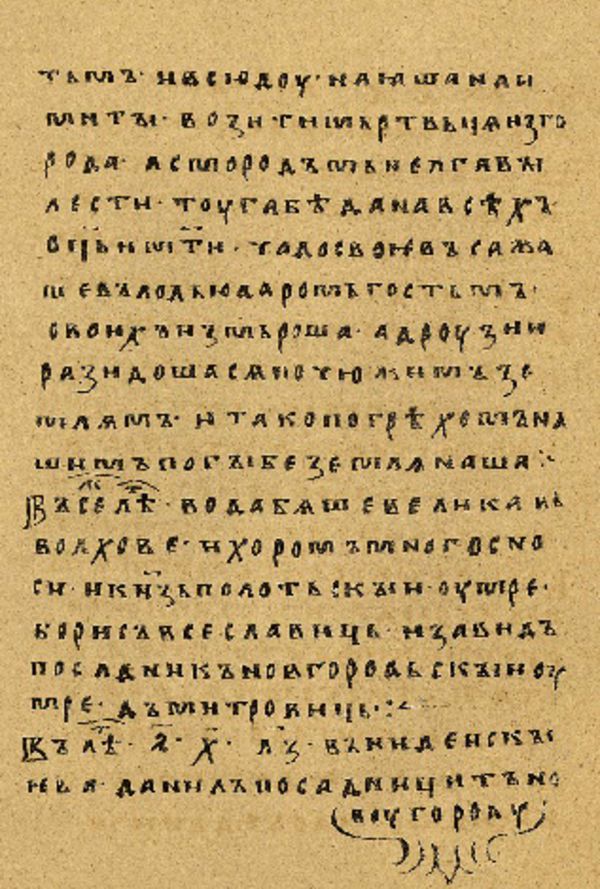 тьмъ · и вьсюдоу · наꙗша наи
мнты · вознти мьртвьця из го
рода · а смородъмь нелга вы
лести · тоуга бѣда на всѣхъ
оць и мти · чадо свое въсажа
ше въ лодью даромъ гостьмъ ·
ово ихъ измьроша · а дроузии
разидошася по чюжимъ зе
млямъ · и тако по грѣхомъ на
шимъ погыбе земля наша :·
Въ се лѣ · вода бяше велика въ
волхове · и хоромъ много сно
си · и кнзь полотьскыи · оумре ·
борисъ всеславиць · и завидъ
посадникъ новгородьскыи оу
мре · дъмитровиць :·
Въ лѣ · ҂ѕ · х · лз · въниде ис кы
ева · данилъ посадницитъ но
воугороду